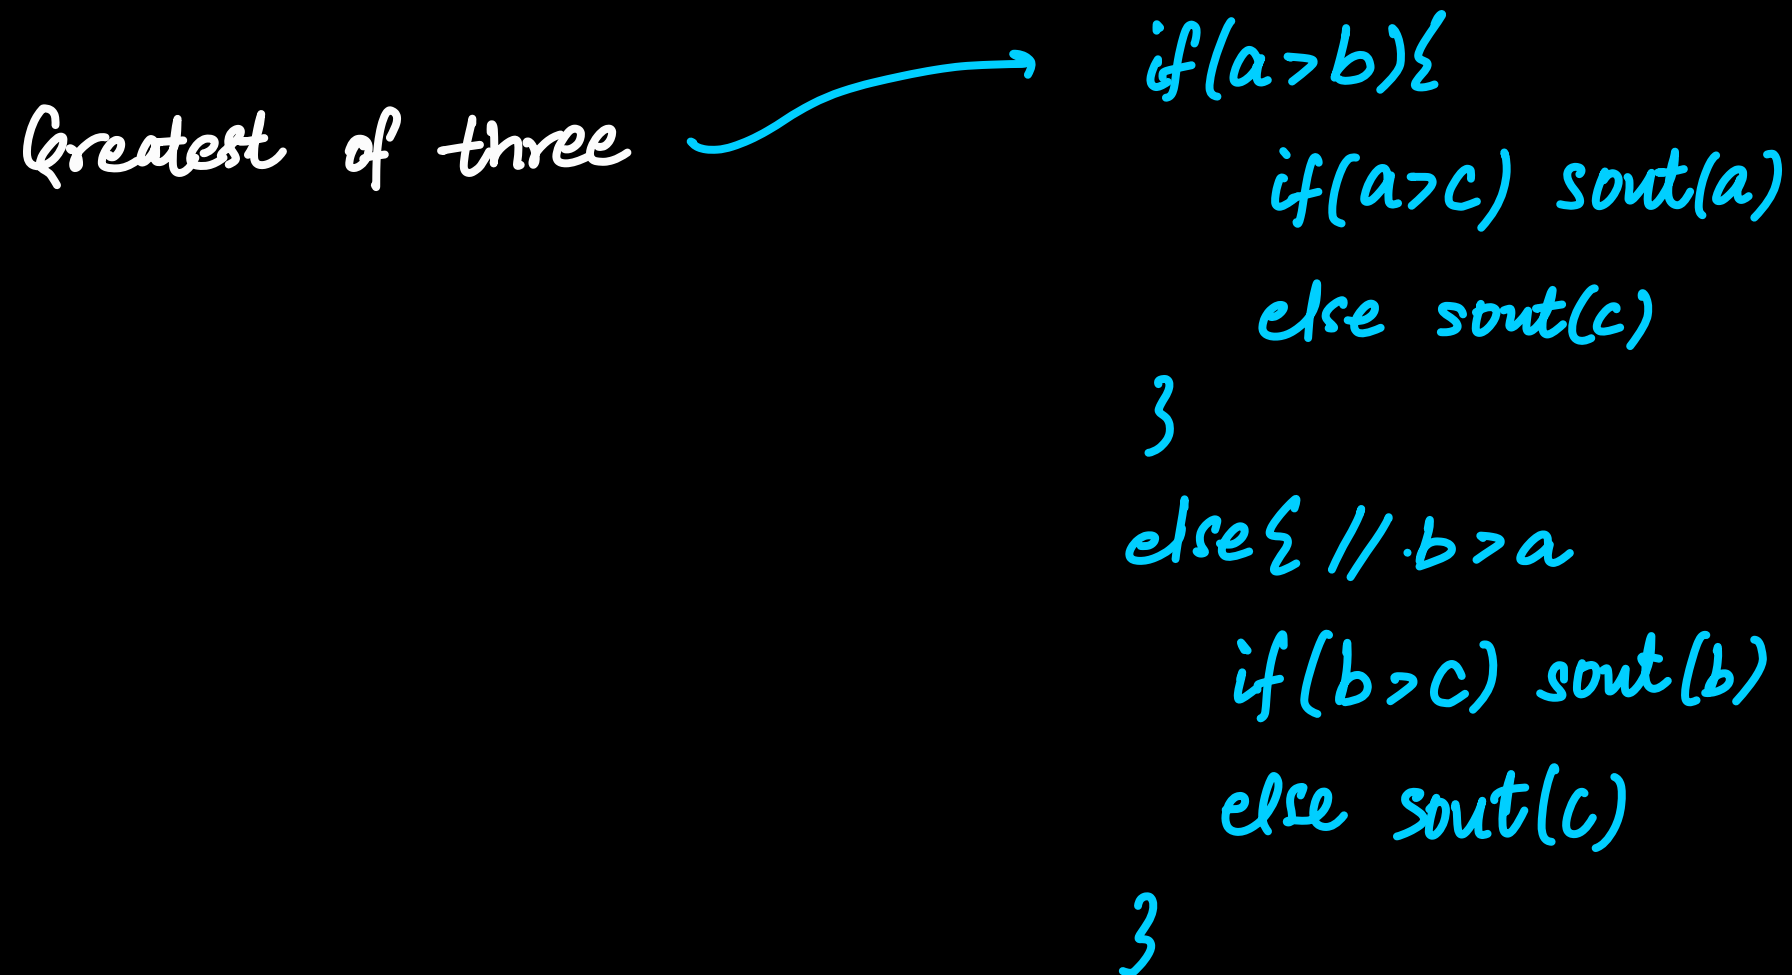 Greatest of three
if(a>b){
if(a>c) sout(a)
else sout(c)
}
else{ // b>a
if(b>c) sout(b)
else sout(c)
}